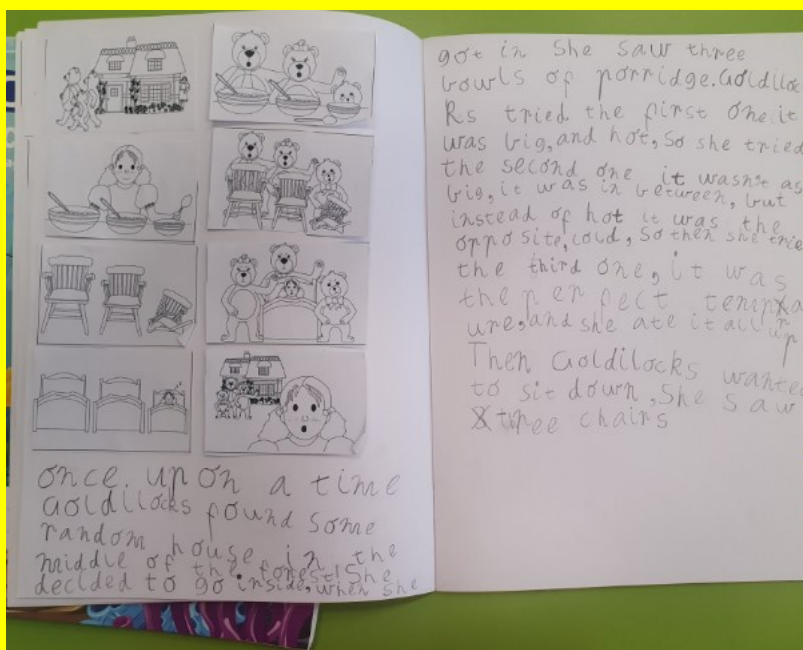 once. upon a time
Goldilocks found some
random house in the
middle of the forest! She
decided to go inside, when she
got in She saw three
bowls of porridge. Goldiloc
ks tried the first one it
was big, and hot, So she tried
the second one it wasn't as
big, it was in between, but
instead of hot it was the
opposite, cold, So then she trie
the third one, it was
the perfect
ure, and she ate it all up
Then Goldilocks wante
to sit down, She saw
three chairs